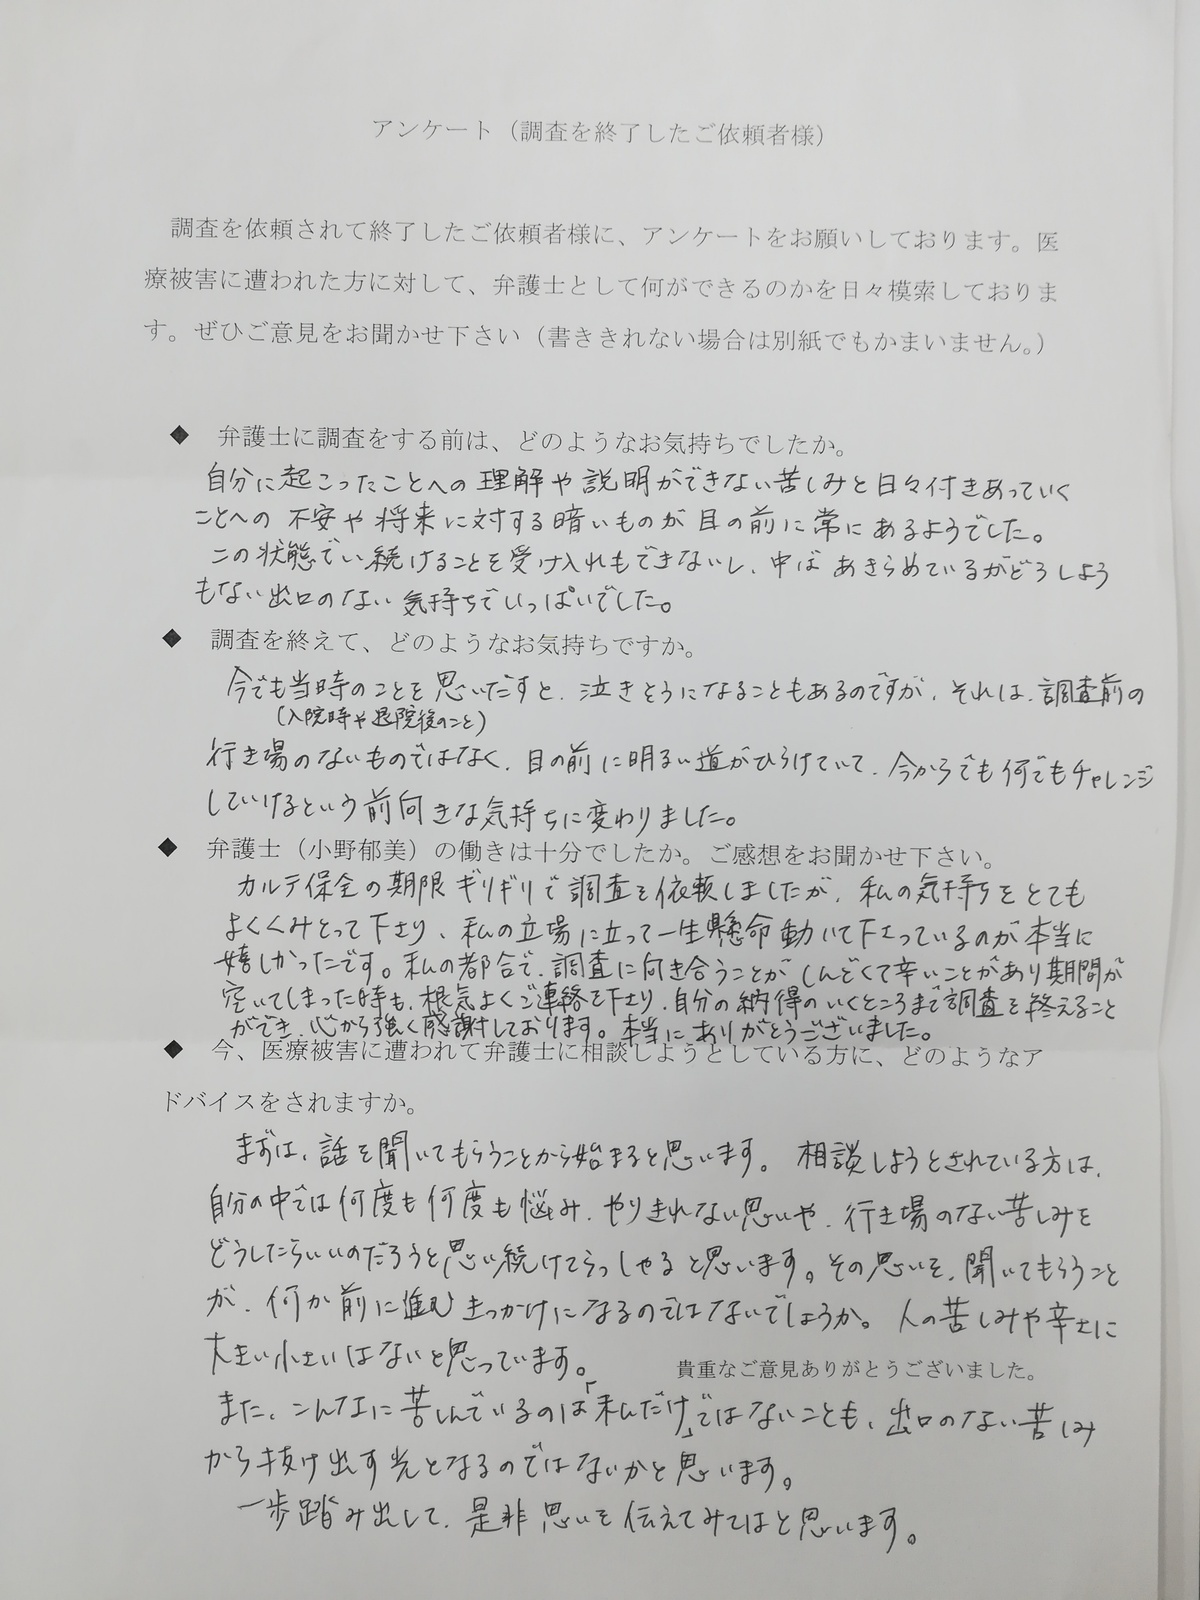 アンケート（調査を終了したご依頼者様）
調査を依頼されて終了したご依頼者様に、アンケートをお願いしております。医
療被害に遭われた方に対して、弁護士として何ができるのかを日々模索しておりま
す。ぜひご意見をお聞かせ下さい（書ききれない場合は別紙でもかまいません。）
◆ 弁護士に調査をする前は、どのようなお気持ちでしたか。
自分に起こったことへの理解や説明ができない苦しみと日々付きあっていく
ことへの不安や将来に対する暗いものが目の前に常にあるようでした。
この状態でい続けることを受け入れもできないし、中ばあきらめているがどうしよう
もない出口のない気持ちでいっぱいでした。
◆ 調査を終えて、どのようなお気持ちですか。
今でも当時のことを思いだすと、泣きそうになることもあるのですが、それは、調査前の
（入院時や退院後のこと）
行き場のないものではなく、目の前に明るい道がひらけていて、今からでも何でもチャレンジ
していけるという前向きな気持ちに変わりました。
◆ 弁護士（小野郁美）の働きは十分でしたか。ご感想をお聞かせ下さい。
カルテ保全の期限ギリギリで調査を依頼しましたが、私の気持ちをとても
よくくみとって下さり、私の立場に立って一生懸命動いて下さっているのが本当に
嬉しかったです。私の都合で、調査に向き合うことがしんどくて辛いことがあり期間が
空いてしまった時も、根気よくご連絡を下さり、自分の納得のいくところまで調査を終えること
ができ、心から強く感謝しております。本当にありがとうございました。
◆ 今、医療被害に遭われて弁護士に相談しようとしている方に、どのようなア
ドバイスをされますか。
まずは、話を聞いてもらうことから始まると思います。相談しようとされている方は、
自分の中では何度も何度も悩み、やりきれない思いや、行き場のない苦しみを
どうしたらいいのだろうと思い続けてらっしゃると思います。その思いを、聞いてもらうこと
が、何か前に進むきっかけになるのではないでしょうか。人の苦しみや辛さに
大きい小さいはないと思っています。
貴重なご意見ありがとうございました。
また、こんなに苦しんでいるのは「私だけ」ではないことも、出口のない苦しみ
から抜け出す光となるのではないかと思います。
一歩踏み出して、是非思いを伝えてみてはと思います。